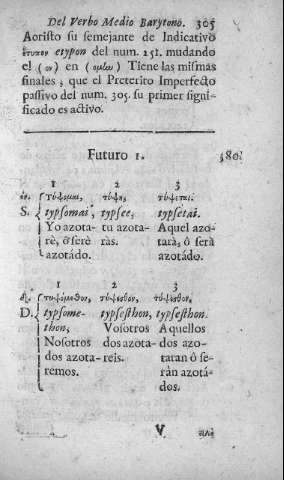 Del Verbo Medio Barytono. 305
Aoristo su semejante de Indicativo
ἔτυπον etypon del num. 251. mudando
el (ον) en (ομλω) Tiene las mismas
finales, que el Preterito Imperfecto
passivo del num. 305. su primer signi-
ficado es activo.
Futuro 1. 380.
1 2 3
τύψομαι, τύψῃ, τύψεται.
S. typsomai, typsee, typsetai.
Yo azota- tu azota- Aquel azo-
rè, ò serè ràs. tarà, ò serà
azotádo. azotádo.
1 2 3
τυψόμεθον, τύψεσθον, τύψεσθον.
D. typsome- typsesthon, typsesthon.
thon, Vosotros Aquellos
Nosotros dos azota- dos azo-
dos azota- reis. taran ò se-
remos. ràn azotá-
dos.
V